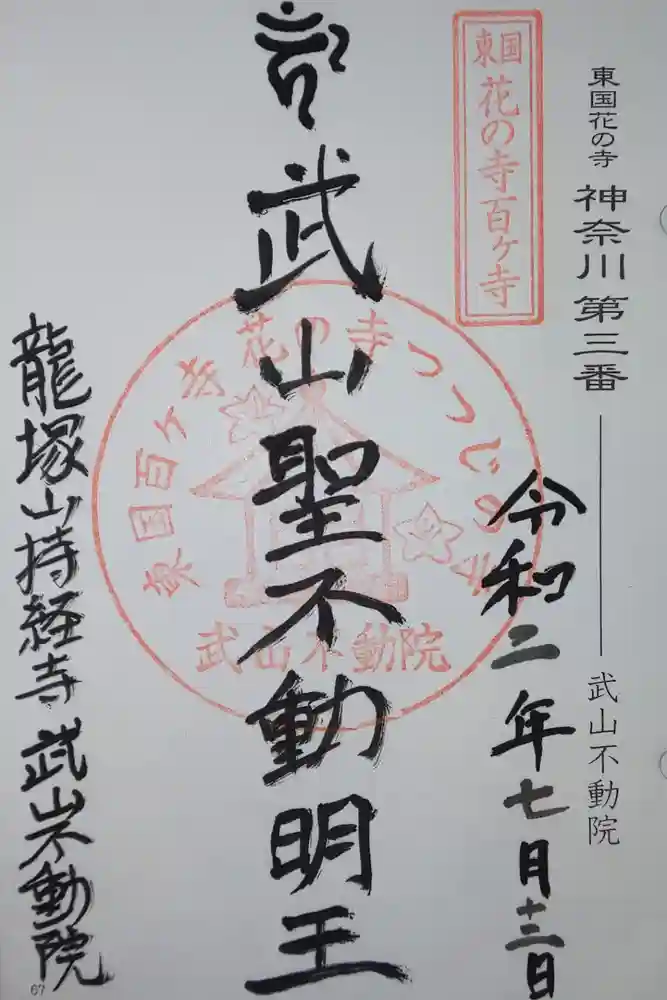 東国花の寺 神奈川 第三番 武山不動院
東国
花の寺百ケ寺
令和二年七月十三日
武山聖不動明王
東国百ヶ寺花の寺つつじの寺
武山不動院
龍塚山持経寺 武山不動院
67